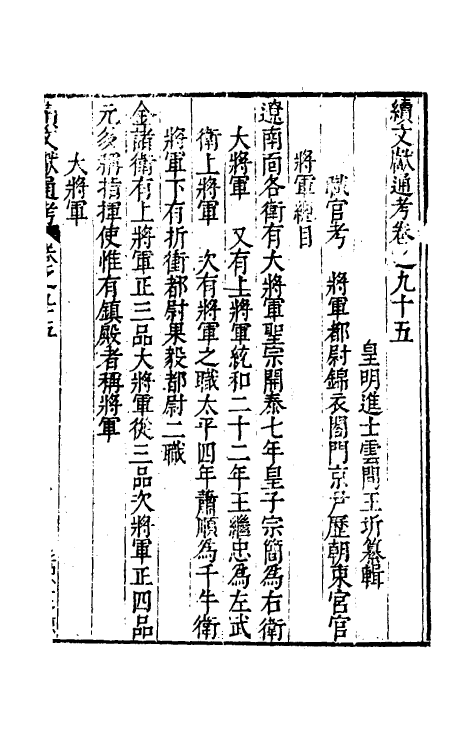 續文獻通考卷之九十五
皇明進士雲間王圻纂輯
職官考　將軍都尉錦衣閤門京尹歷朝東宮官
將軍總目
遼南面各衛有大將軍聖宗開泰七年皇子宗簡為右衛
大將軍　又有上將軍統和二十二年王繼忠為左武
衛上將軍　次有將軍之職太平四年蕭順為千牛衛
將軍下有折衝都尉果毅都尉二職
金諸衛有上將軍正三品大將軍從三品次將軍正四品
元後稱指揮使惟有鎮殿者稱將軍
大將軍
續文獻通考 卷之九十五